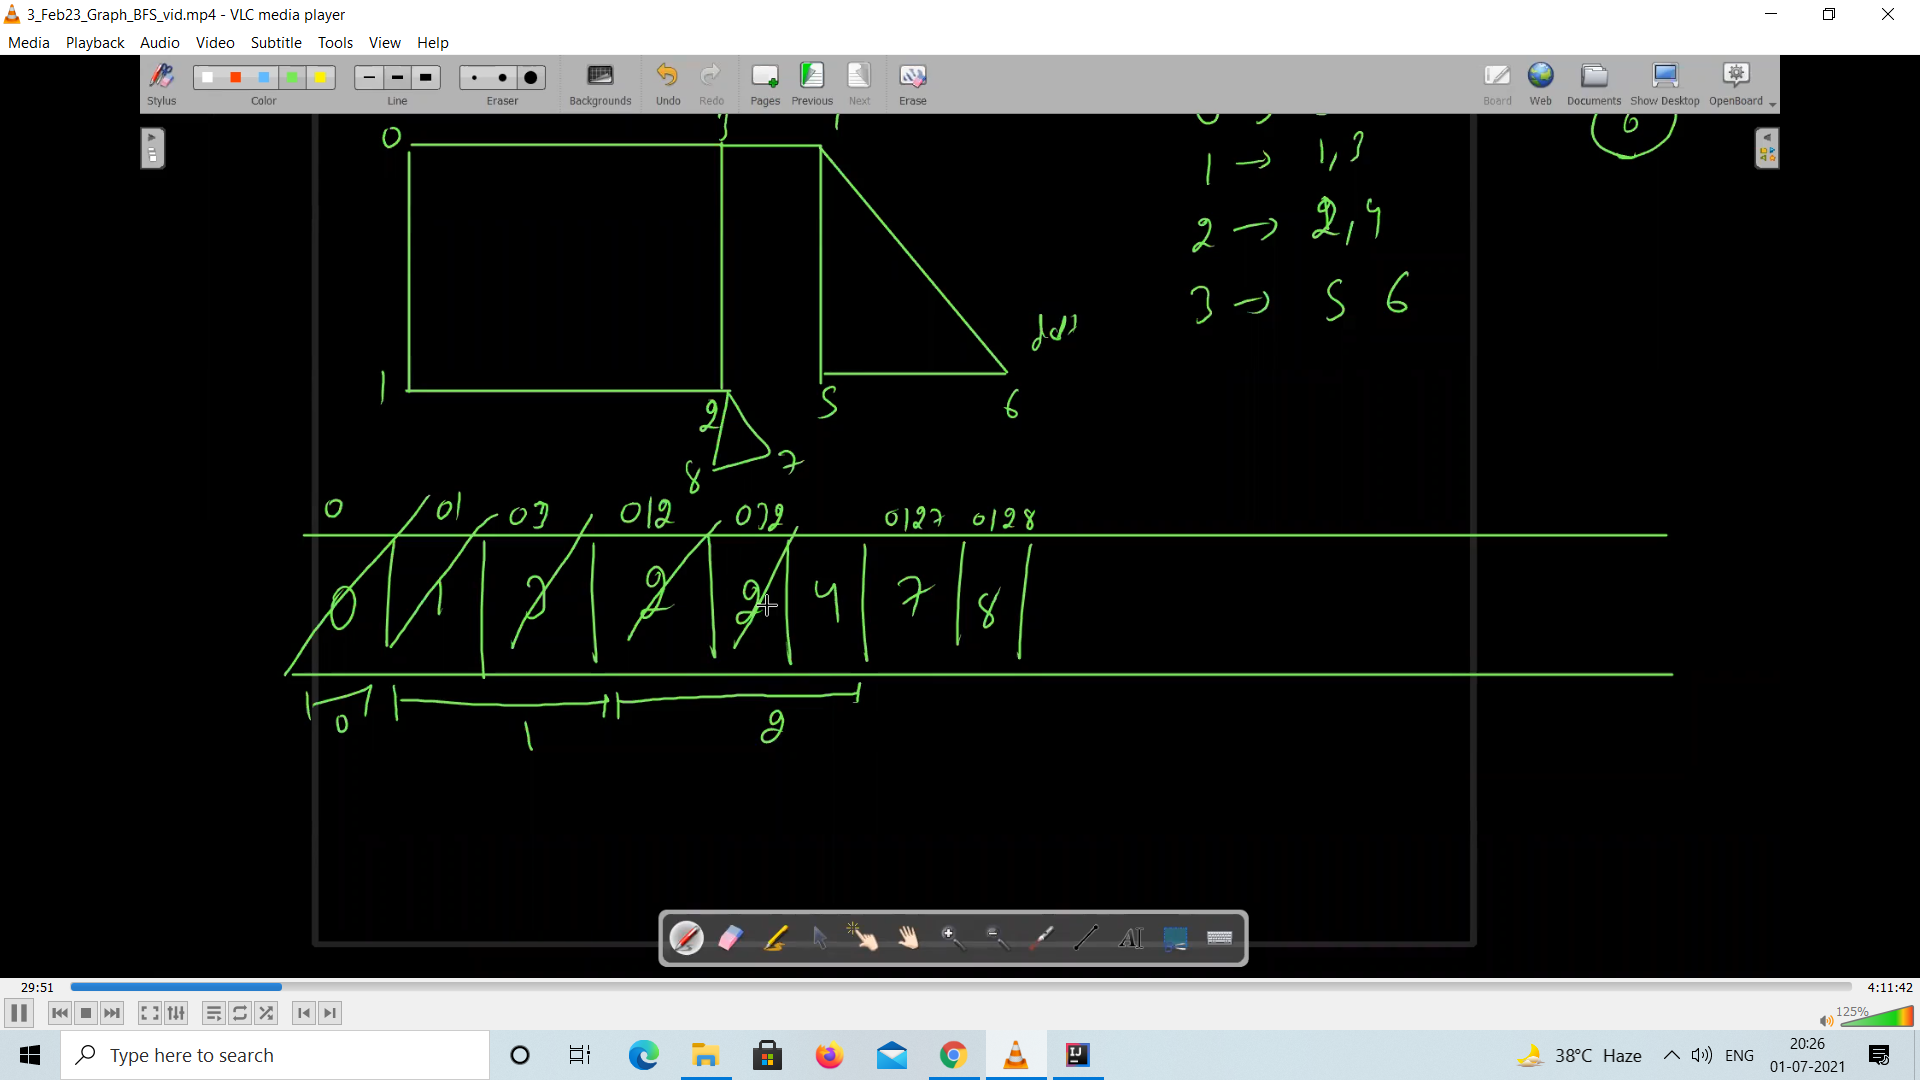 3_Feb23_Graph_BFS_vid.mp4 - VLC media player
Media Playback Audio Video Subtitle Tools View Help
Stylus Color Line Eraser Backgrounds Undo Redo Pages Previous Next Erase Board Web Documents Show Desktop OpenBoard
0
1 → 1,3
2 → 2,4
3 → 5 6
1 2 5 6
8 7
0 01 03 012 032 0127 0128
0 1 3 2 2 4 7 8
0 1 2
29:51 4:11:42
125%
Type here to search
38°C Haze ENG 20:26
01-07-2021